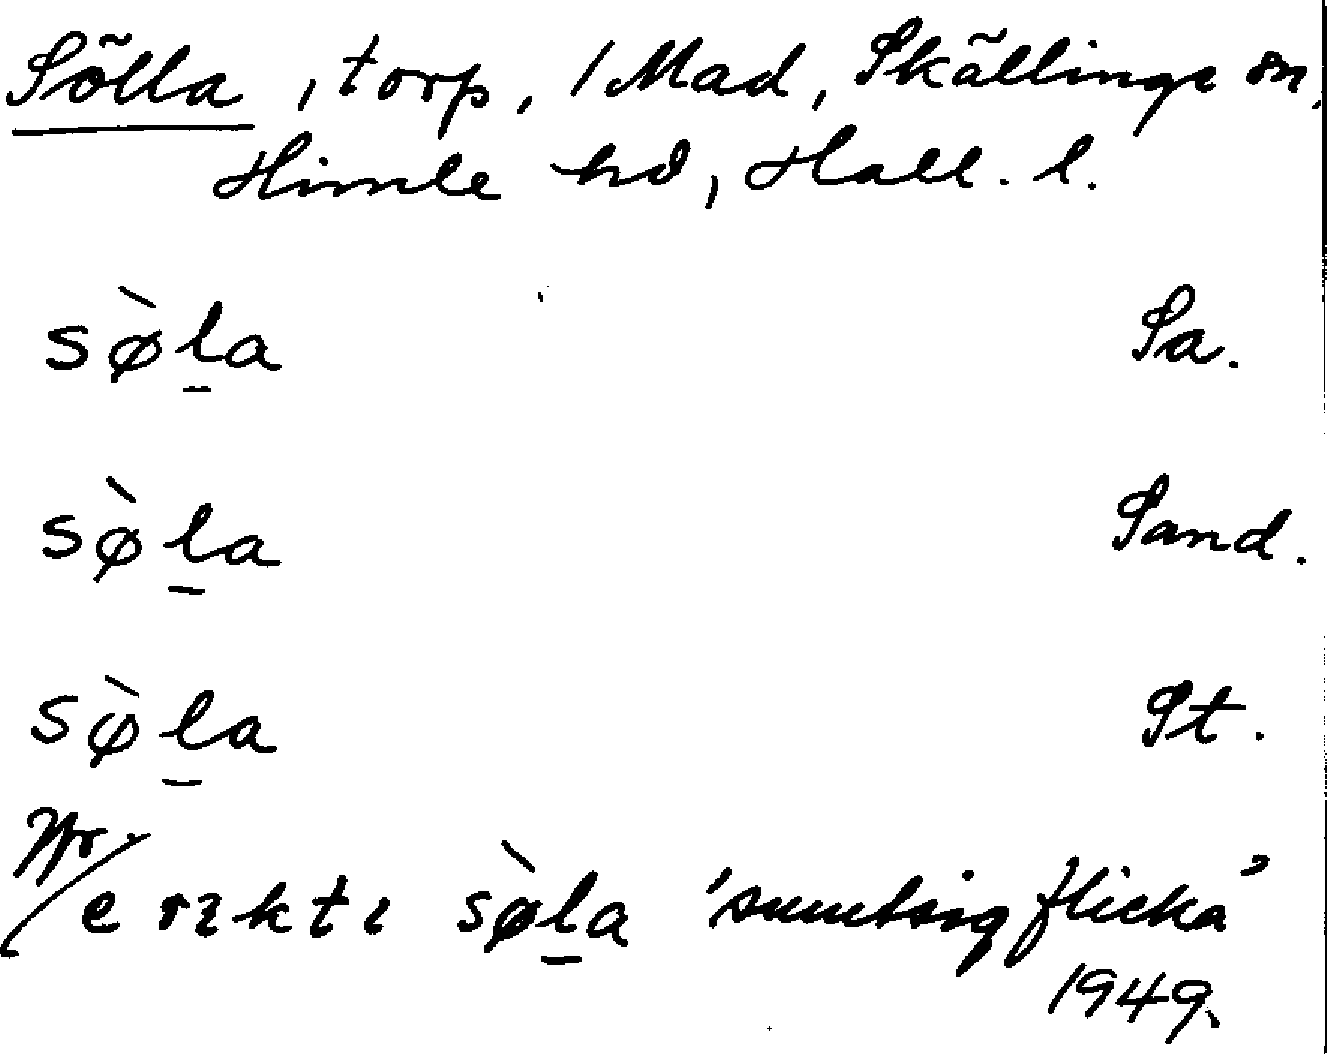 Sölla, torp, /Mad, Skällinge sn,
Himle hd, Hall. l.
sø̀l̲a Sa.
sø̀l̲a Sand.
sø̀l̲a St.
Jfr
e rikti sø̀l̲a 'smutsig flicka'
1949.